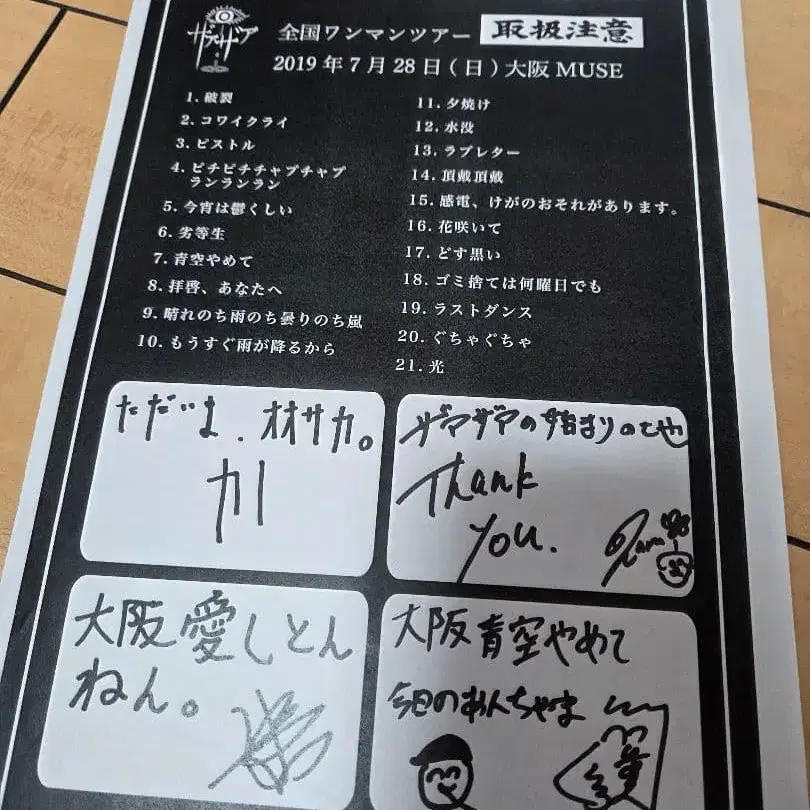 ザアザア
全国ワンマンツアー 取扱注意
2019年7月28日(日)大阪MUSE
1. 破裂
2. コワイクライ
3. ピストル
4. ピチピチチャプチャプ
ランランラン
5. 今宵は鬱くしい
6. 劣等生
7. 青空やめて
8. 拝啓、あなたへ
9. 晴れのち雨のち曇りのち嵐
10. もうすぐ雨が降るから
11. 夕焼け
12. 水没
13. ラブレター
14. 頂戴頂戴
15. 感電、けがのおそれがあります。
16. 花咲いて
17. どす黒い
18. ゴミ捨ては何曜日でも
19. ラストダンス
20. ぐちゃぐちゃ
21. 光
ただいま. オオサカ。
ザアザアの始まりの地
Thank
you.
大阪愛しとん
ねん。
大阪青空やめて
今日のあんちゃま